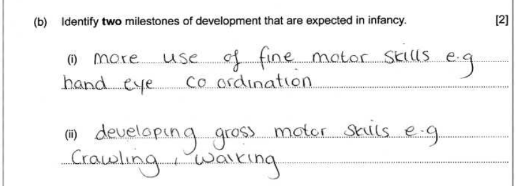 (b) Identify two milestones of development that are expected in infancy. [2]
(i) more use of fine motor skills e.g
hand eye co ordination
(ii) developing gross motor skills e.g
Crawling, walking